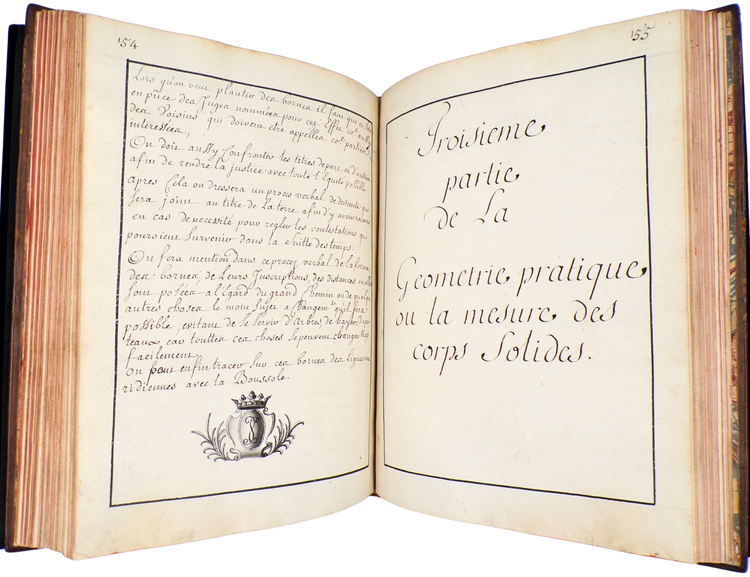 154
Lors qu'on veut planter des bornes il faut que ce
en pñce des Juges nommées pour cet Effet
des Voisins qui doivent etre appellea
interessea,
On dois aussy Confronter les titres de part et
afin de rendre la justice avec toute l'Equité possible
apres Cela on dressera un proces verbal de descente qui
sera joint au titre de la terre afin d'y avoir recours
en cas de necessité pour regler les contestations qui
pouroient survenir dans la suitte des temps.
On fera mention dans ce procez verbal de la forme
des bornea, de Leurs Inscriptions, des distances
sont poséea a l'Egard du grand Chemin ou de quelque
autres chosea le moin sujet a Changemt qu'il sera
possible, evitant de se servir d'Arbres de
car touttea cea choses se peuvent changer
facilement,
on peut enfin tracer sur cea bornea des Lignes
ridiennes avec la Boussole.
155
Troisieme
partie
de La
Geometrie pratique
ou la mesure des
corps Solides.